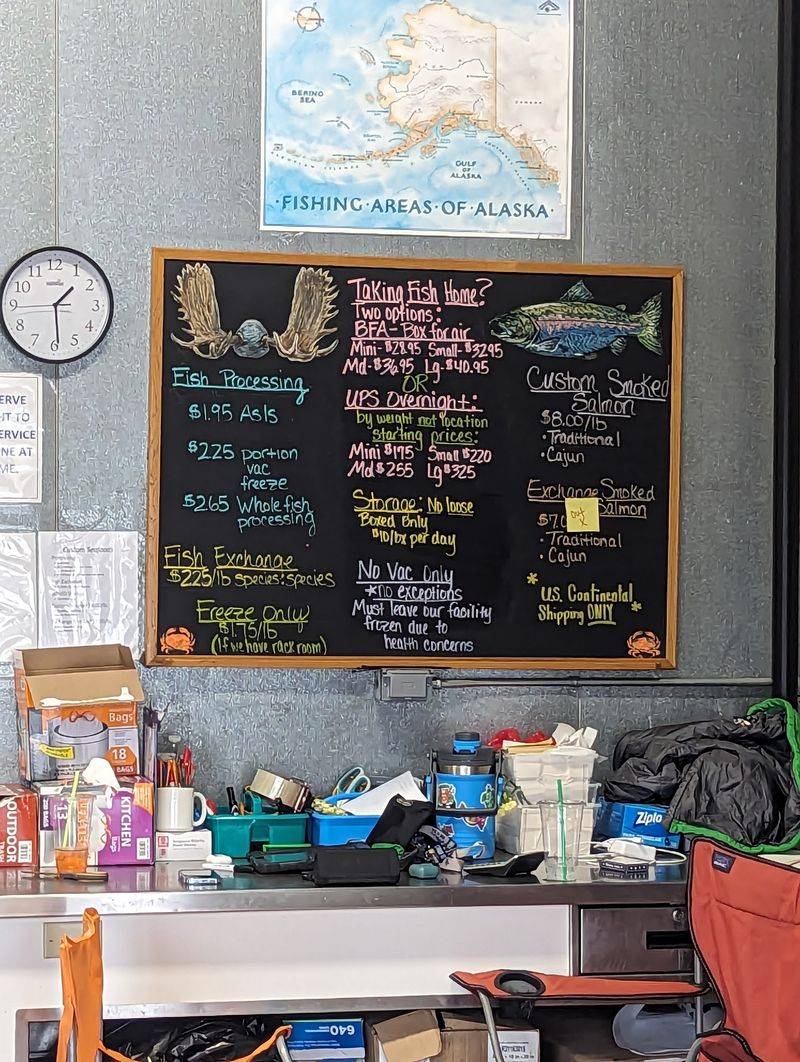 BERING
SEA
CANADA
GULF
OF
ALASKA
·FISHING·AREAS·OF·ALASKA·
11 12 1
10 2
9 3
8 4
7 6 5
ERVE
HT TO
SERVICE
NE AT
ME.
Custom Seafoods
Fish Processing
$1.95 As Is
$2.25 portion
vac
freeze
$2.65 Whole fish
processing
Fish Exchange
$2.25/lb species:species
Freeze Only
$1.75/lb
(if we have rack room)
Taking Fish Home?
Two options:
BFA - Box for air
Mini - $28.95 Small - $32.95
Md - $36.95 Lg - $40.95
OR
UPS Overnight:
by weight not location
starting prices:
Mini $175 Small $220
Md $255 Lg $325
Storage: No loose
Boxed Only
$10/bx per day
No Vac Only
*no exceptions
Must leave our facility
frozen due to
health concerns
Custom Smoked
Salmon
$8.00/lb
• Traditional
• Cajun
Exchange Smoked
Salmon
$7.0
out
• Traditional
• Cajun
* U.S. Continental
Shipping ONLY *
Bags
18
OUTDOOR
13
KITCHEN
Bags
Ziplo
640